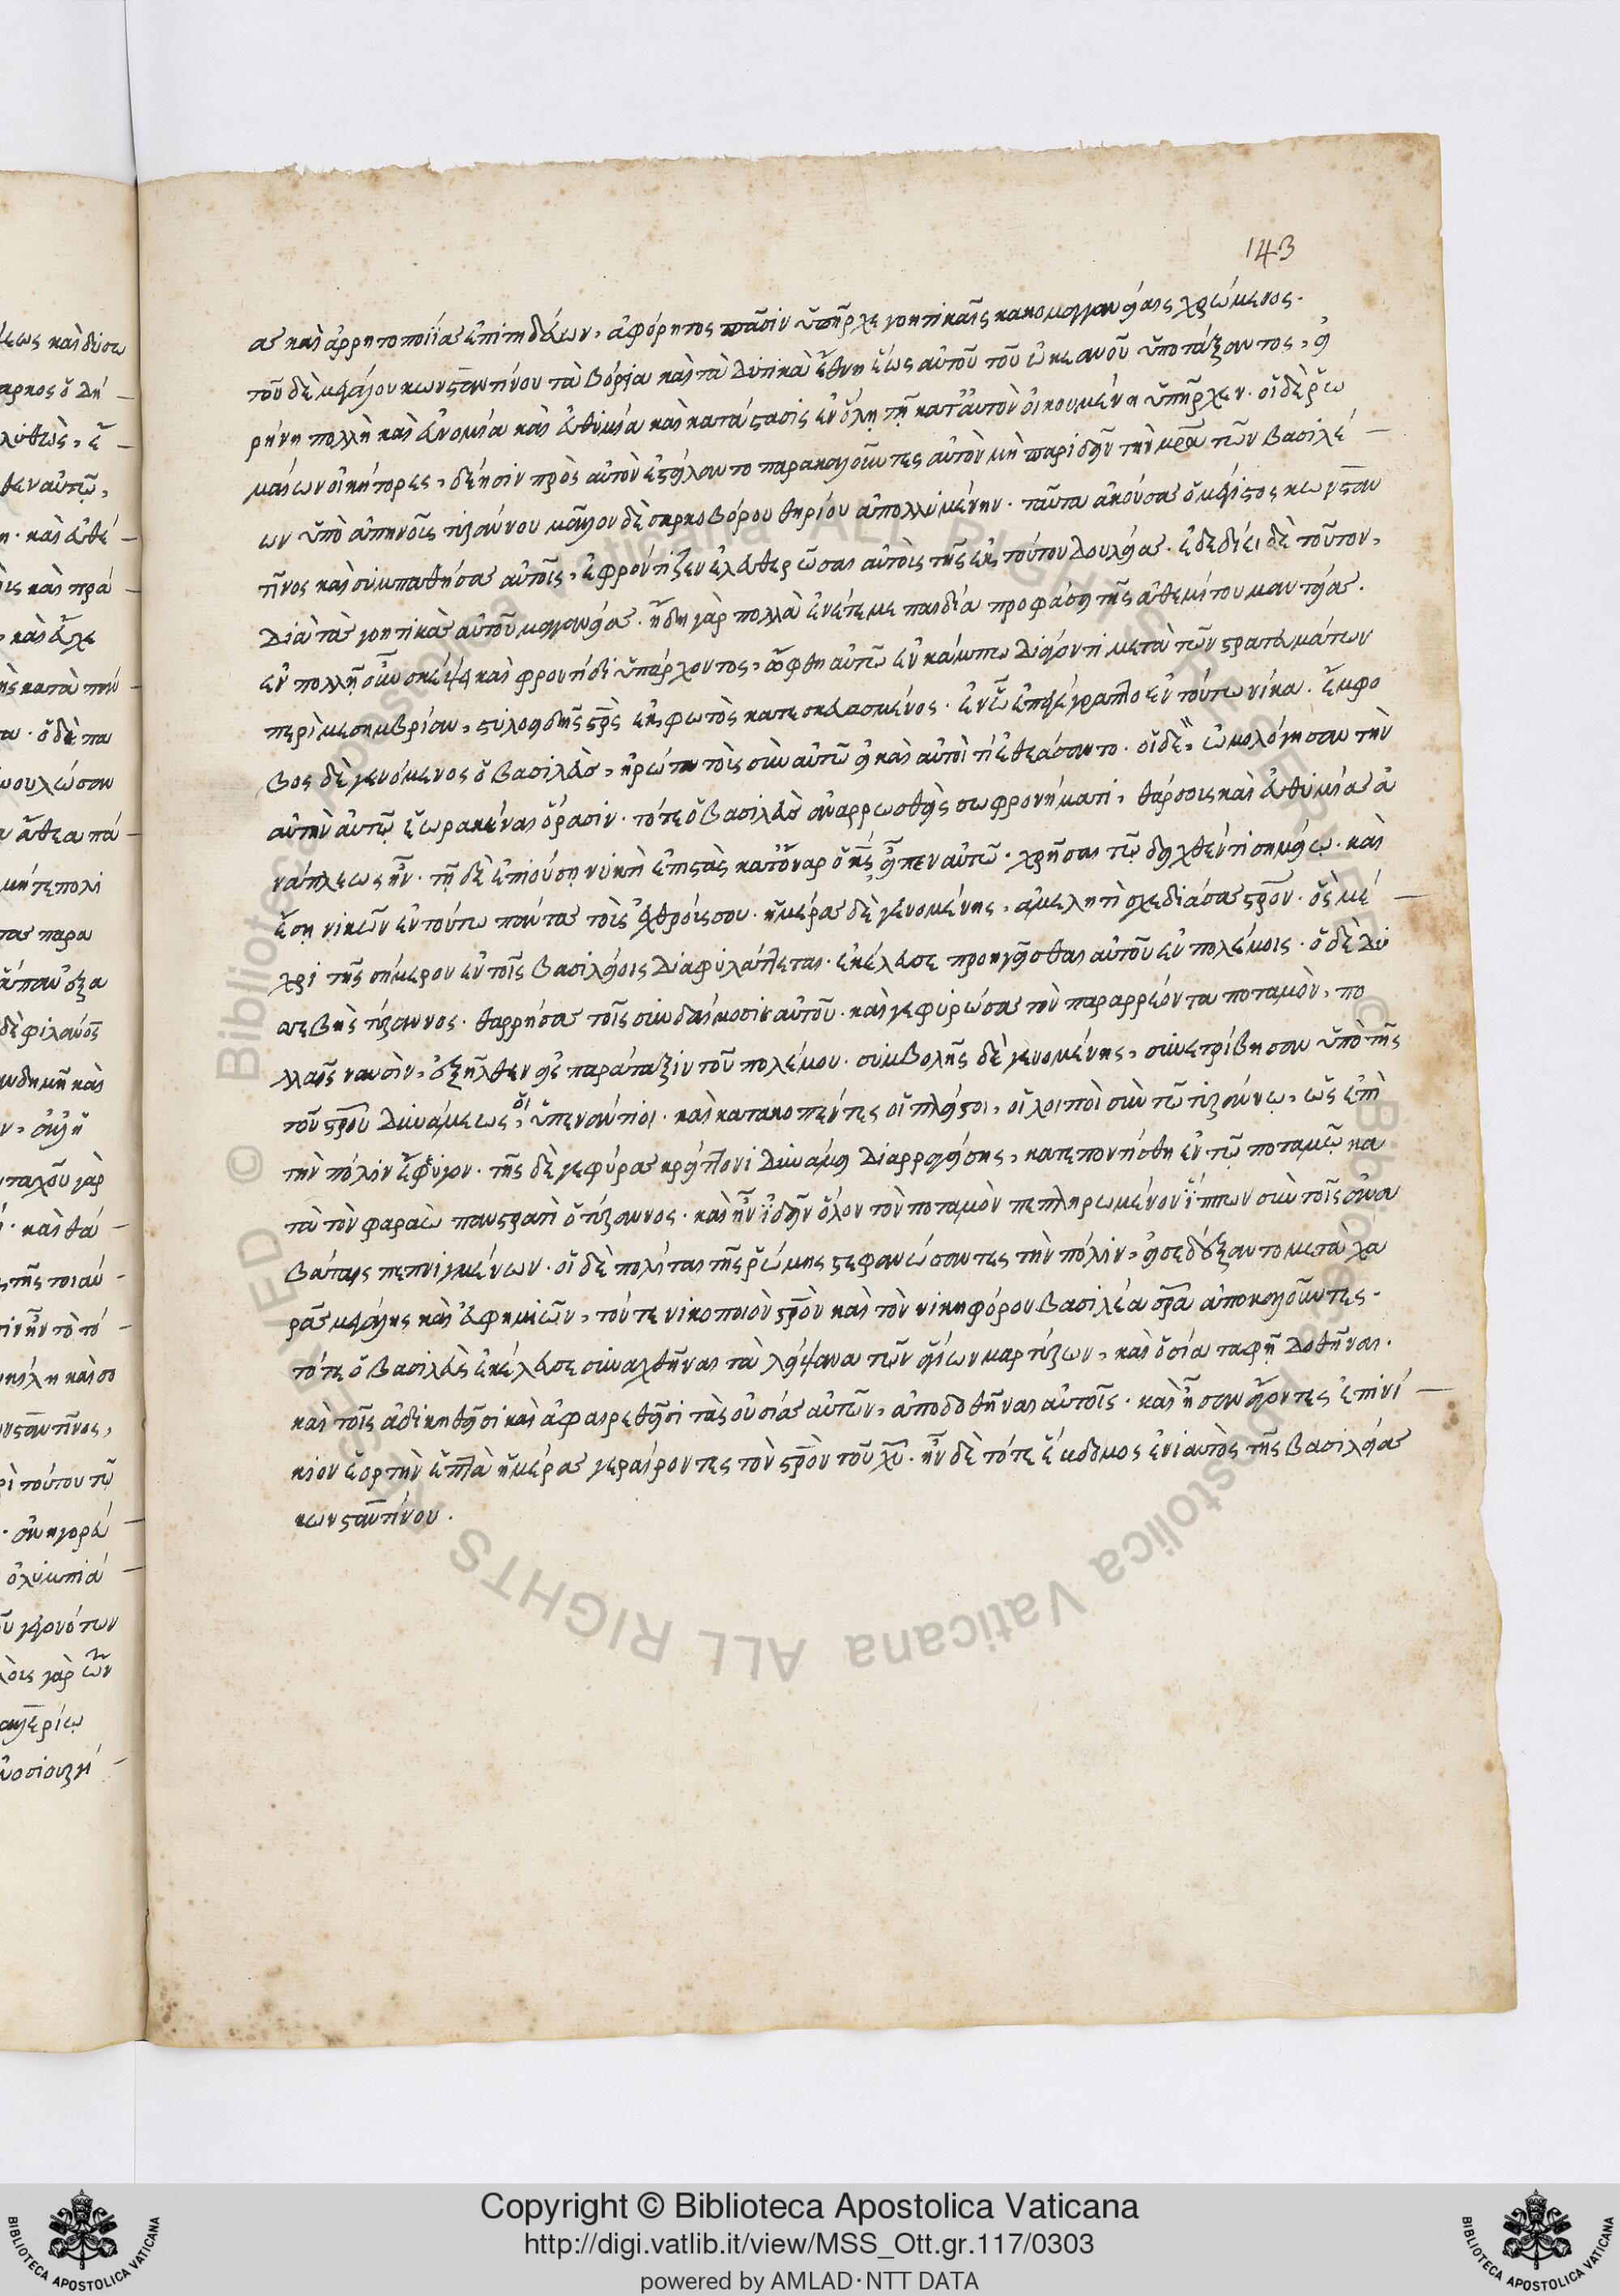 143
ας καὶ ἀρρητοποιΐας ἐπιτηδεύων, ἀφόρητος πᾶσιν ὑπῆρχε γοητικαῖς κακομαγγανείαις χρώμενος.
τοῦ δὲ μεγάλου κωνσταντίνου τὰ βόρεια καὶ τὰ δυτικὰ ἔθνη ἕως αὐτοῦ τοῦ ὠκεανοῦ ὑποτάξαντος, εἰ
ρήνη πολλὴ καὶ εὐνομία καὶ εὐθυμία καὶ κατάστασις ἐν ὅλῃ τῇ κατ' αὐτὸν οἰκουμένῃ ὑπῆρχεν. οἱ δὲ ῥω
μαίων οἰκήτορες, δέησιν πρὸς αὐτὸν ἐστείλαντο παρακαλοῦντες αὐτὸν μὴ παριδεῖν τὴν μρᾶ τῶν βασιλέ
ων ὑπὸ ἀπηνοῦς τυράννου μᾶλλον δὲ σαρκοβόρου θηρίου ἀπολλυμένην. ταῦτα ἀκούσας ὁ μέγιστος κωνσταν
τῖνος καὶ συμπαθήσας αὐτοῖς, ἐφρόντιζεν ἐλευθερῶσαι αὐτοὺς τῆς ἐκ τούτου δουλείας. ἐδεδίει δὲ τοῦτον,
διὰ τὰς γοητικὰς αὐτοῦ μαγγανείας. ἤδη γὰρ πολλὰ ἀνέτεμε παιδία προφάσει τῆς ἀθεμίτου μαντείας.
ἐν πολλῇ οὖν σκέψει καὶ φροντίδι ὑπάρχοντος, ὤφθη αὐτῷ ἐν κάμπω διάγοντι μετὰ τῶν στρατευμάτων
περὶ μεσημβρίαν, στυλοειδὴς στρὸς ἐκ φωτὸς κατεσκευασμένος. ἐν ᾧ ἐπεγέγραπτο ἐν τούτω νίκα. ἔμφο
βος δὲ γενόμενος ὁ βασιλεὺς, ἠρώτα τοὺς σὺν αὐτῷ εἰ καὶ αὐτοὶ τί ἐθεάσαντο. οἱ δὲ, ὡμολόγησαν τὴν
αὐτὴν αὐτῷ ἑωρακέναι ὅρασιν. τότε ὁ βασιλεὺς ἀναρρωσθεὶς σωφρονήματι, θάρσους καὶ εὐθυμίας ἀ
νάπλεως ἦν. τῇ δὲ ἐπιούσῃ νυκτὶ ἐπιστὰς κατ' ὄναρ ὁ κς εἶπεν αὐτῷ. χρῆσαι τῷ δειχθέντι σημείῳ. καὶ
ἔσῃ νικῶν ἐν τούτω πάντας τοὺς ἐχθρούς σου. ἡμέρας δὲ γενομένης, ἀμελητὶ σχεδιάσας στρον. ὃς μέ
χρι τῆς σήμερον ἐν τοῖς βασιλείοις διαφυλάττεται. ἐκέλευσε προηγεῖσθαι αὐτοῦ ἐν πολέμοις. ὁ δὲ δυ
σσεβὴς τύραννος. θαρρήσας τοῖς συνδαίμοσιν αὐτοῦ. καὶ γεφυρώσας τὸν παραρρέοντα ποταμὸν, πο
λλαῖς ναυσὶν, ἐξῆλθεν εἰς παράταξιν τοῦ πολέμου. συμβολῆς δὲ γενομένης, συνετρίβησαν ὑπὸ τῆς
τοῦ στρου δυνάμεως, οἱ ὑπεναντίοι. καὶ κατακοπέντες οἱ πλεῖστοι, οἱ λοιποὶ σὺν τῷ τυράννῳ, ὡς ἐπὶ
τὴν πόλιν ἔφευγον. τῆς δὲ γεφύρας κρείττονι δυνάμει διαρραγείσης, κατεποντίσθη ἐν τῷ ποταμῷ κα
τὰ τὸν φαραὼ πανστρατὶ ὁ τύραννος. καὶ ἦν ἰδεῖν ὅλον τὸν ποταμὸν πεπληρωμένον ἵππων σὺν τοῖς ἀνα
βάταις πεπνιγμένων. οἱ δὲ πολίται τῆς ῥώμης στεφανώσαντες τὴν πόλιν, εἰσεδέξαντο μετὰ χα
ρᾶς μεγάλης καὶ εὐφημιῶν, τόν τε νικοποιὸν στρὸν καὶ τὸν νικηφόρον βασιλέα σρᾶ ἀποκαλοῦντες.
τότε ὁ βασιλεὺς ἐκέλευσε συναχθῆναι τὰ λείψανα τῶν ἁγίων μαρτύρων, καὶ ὁσίᾳ ταφῇ δοθῆναι.
καὶ τοῖς ἀδικηθεῖσι καὶ ἀφαιρεθεῖσι τὰς οὐσίας αὐτῶν, ἀποδοθῆναι αὐτοῖς. καὶ ἦσαν ἄγοντες ἐπινί
κιον ἑορτὴν ἑπτὰ ἡμέρας γεραίροντες τὸν στρὸν τοῦ χυ. ἦν δὲ τότε ἕβδομος ἐνιαυτὸς τῆς βασιλείας
κωνσταντίνου.
Copyright © Biblioteca Apostolica Vaticana
http://digi.vatlib.it/view/MSS_Ott.gr.117/0303
powered by AMLAD·NTT DATA